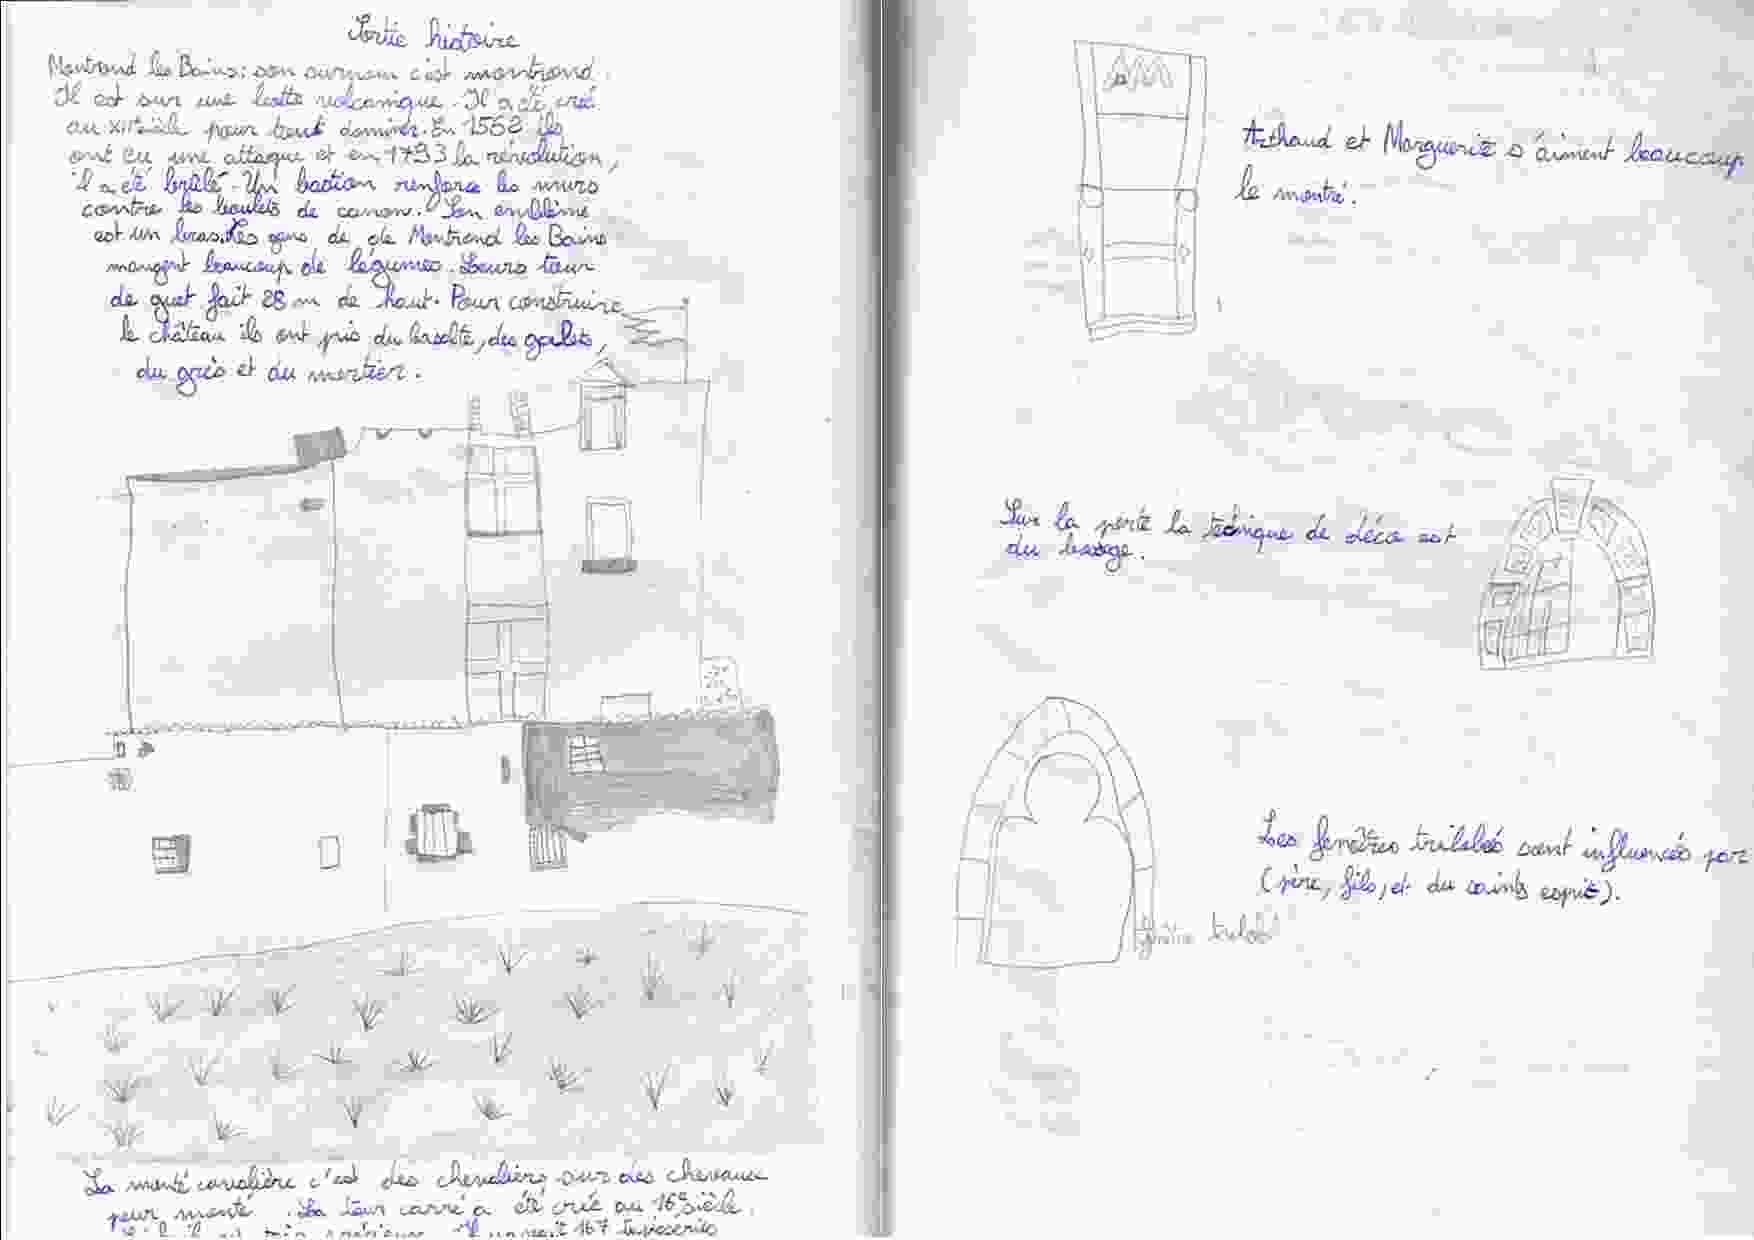 Sortie histoire
Montrond les Bains: son surnom c'est montrond.
Il est sur une butte volcanique. Il a été creé
au XIIe siècle pour tout dominer. En 1562 ils
ont eu une attaque et en 1793 la révolution,
il a été brûlé. Un bastion renforce les murs
contre les boulets de canon. Son emblème
est un bras. Les gens de de Montrond les Bains
mangent beaucoup de légumes. Leurs tour
de guet fait 28 m de haut. Pour construire
le château ils ont pris du basalte, des galets,
du grès et du mortier.
La monté cavalière c'est des chevaliers sur des chevaux
pour monté. La tour carré a été crié au 16e sièle.
il est très 167 tapisseries
Arthaud et Marguerite s'aiment beaucoup
le montré.
Sur la porte la technique de déco est
du bosage.
Les fenêtres trilobés sont influencés par
(père, fils, et du saints esprit).
fenêtre trilobé